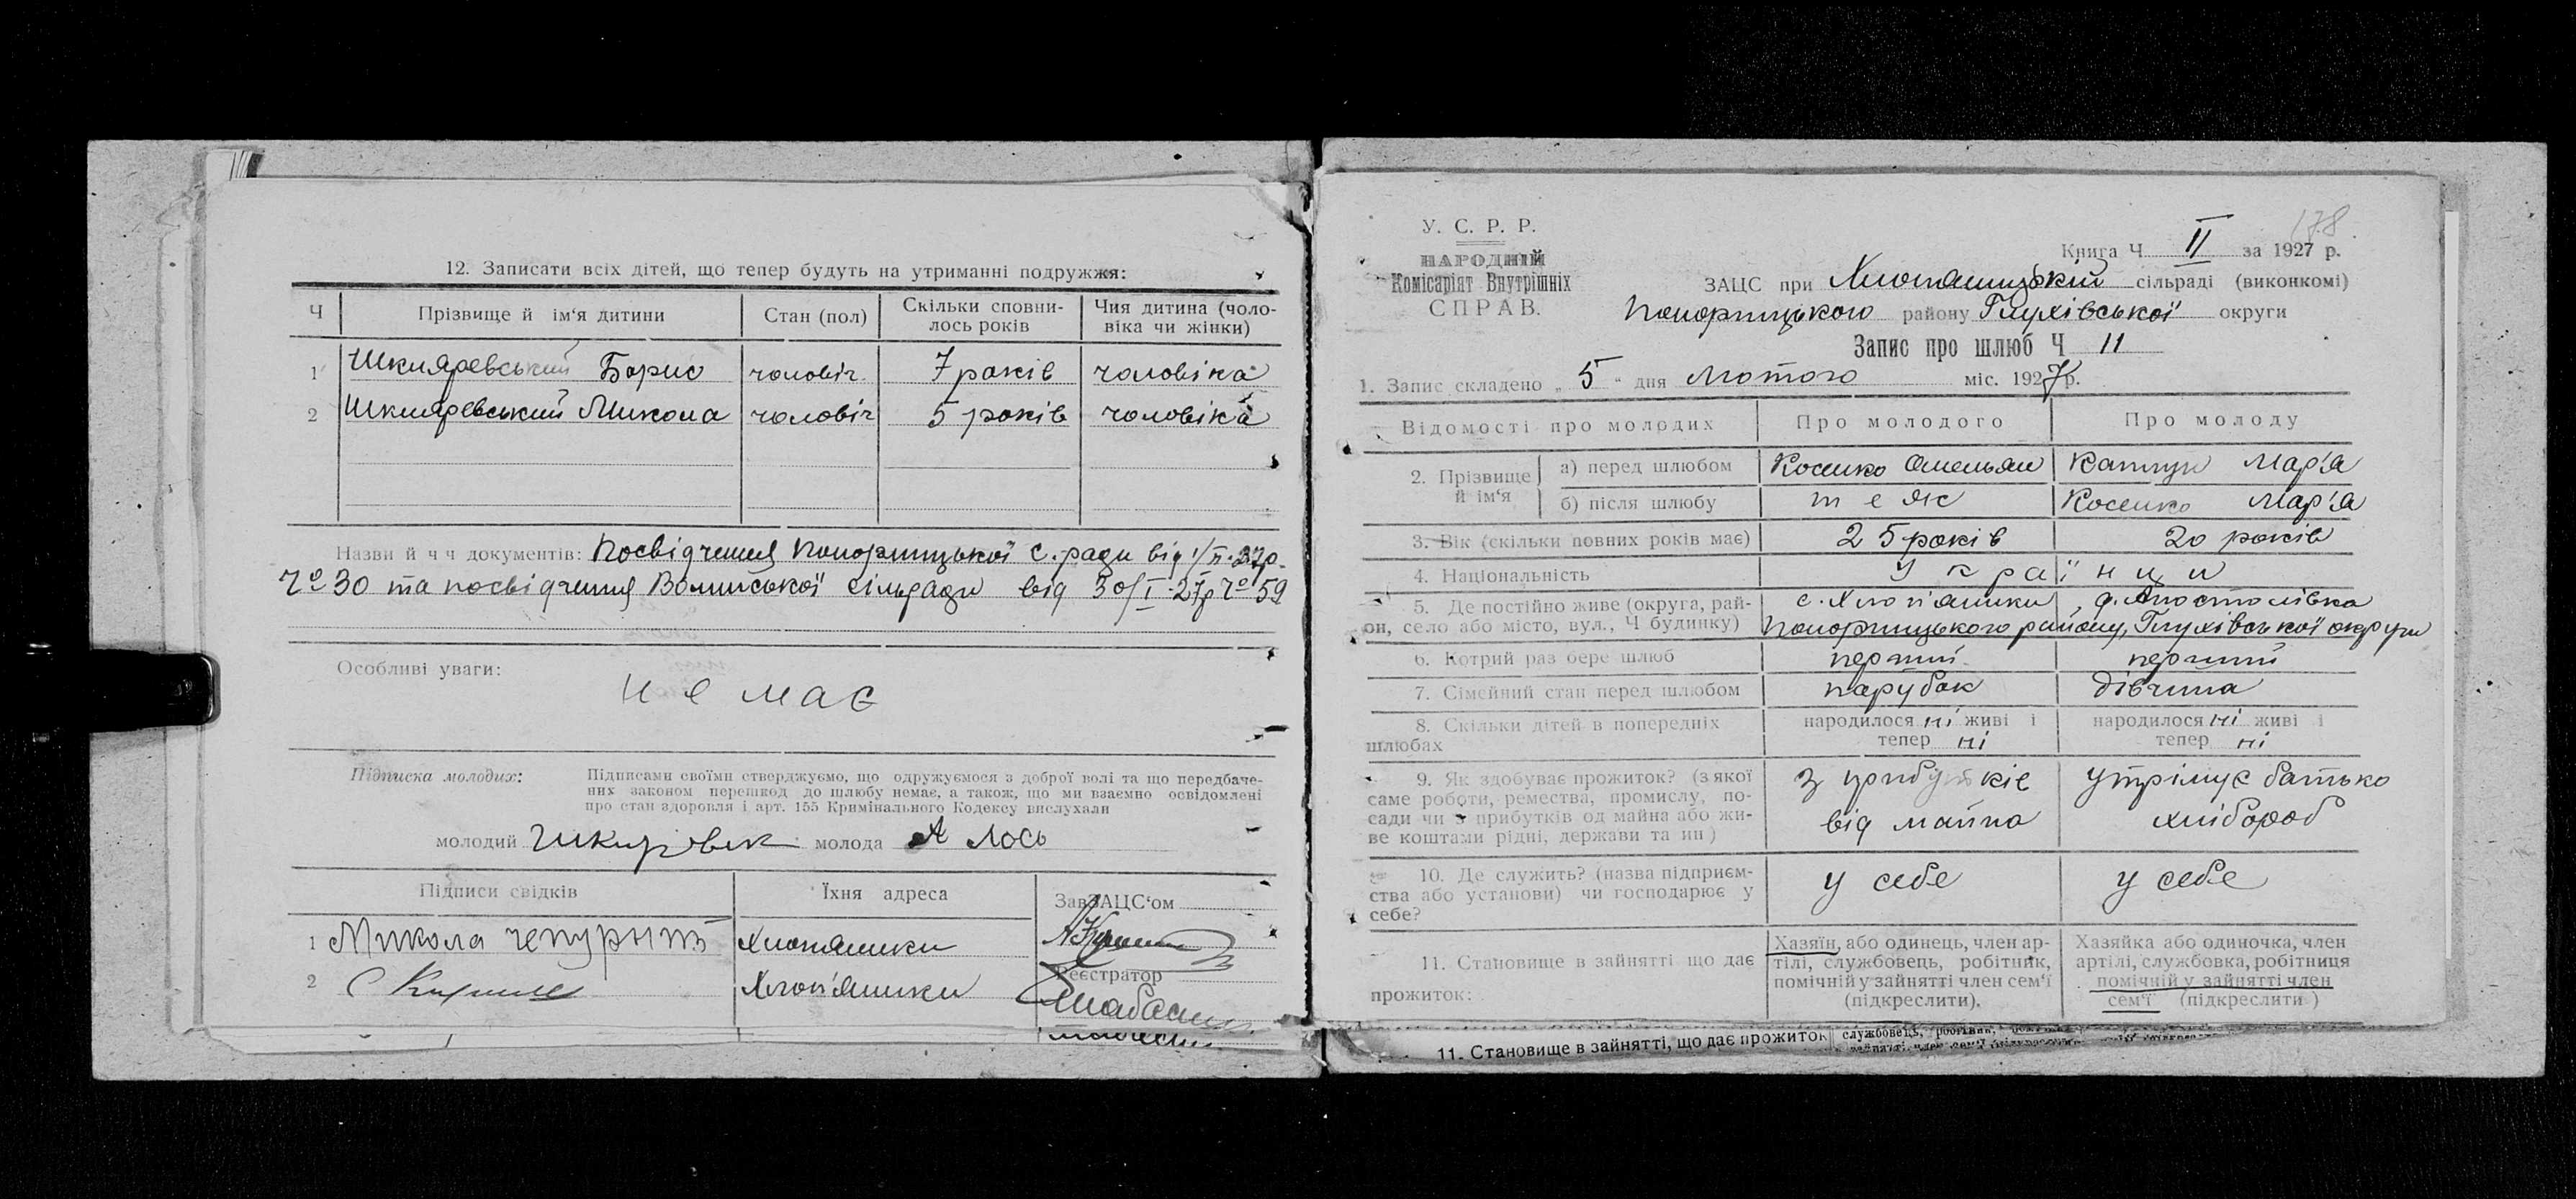 12. Записати всіх дітей, що тепер будуть на утриманні подружжя:
Ч Прізвище й ім‘я дитини Стан (пол) Скільки сповни-лось років Чия дитина (чоло-віка чи жінки)
1 Шкляревський Борис чоловіч. 7 років чоловіка
2 Шкляревський Микола чоловіч 5 років чоловіка
Назви й ч ч документів: Посвідчення Понорницької с. ради від 1/II-27р.
Чо 30 та посвідчення Волинської сільради від 30/I-27р Чо 59
Особливі уваги:
немає
Підписка молодих: Підписами своїми стверджуємо, що одружуємося з доброї волі та що передбаче-
них законом перешкод до шлюбу немає, а також, що ми взаємно освідомлені
про стан здоров‘я і арт. 155 Кримінального Кодексу вислухали
молодий молода А Лось
Підписи свідків Їхня адреса ЗавЗАЦС‘ом
1 Микола Хлопяники
Реєстратор
2 С Хлоп'яники
У. С. Р. Р.
НАРОДНІЙ
Комісаріят Внутрішніх
СПРАВ.
178
Книга Ч II за 1927 р.
ЗАЦС при Хлопяницькій сільраді (виконкомі)
Понорницького району Глухівської округи
Запис про шлюб Ч 11
1. Запис складено „ 5 “ дня лютого міс. 1927р.
Відомості про молодих Про молодого Про молоду
2. Прізвище й ім‘я а) перед шлюбом Косенко Омельян Мар'я
б) після шлюбу те як Косенко Мар'я
3. Вік (скільки повних років має) 25 років 20 років
4. Національність українци
5. Де постійно живе (округа, рай- с. Хлоп'яники, д. Апостолівка
он, село або місто, вул., Ч будинку) Понорницького району, Глухівської округи
6. Котрий раз бере шлюб перший перший
7. Сімейний стан перед шлюбом парубок дівчина
8. Скільки дітей в попередніх народилося ні живі і народилося ні живі і
шлюбах тепер ні тепер ні
9. Як здобуває прожиток? (з якої
саме роботи, ремества, промислу, по-
сади чи з прибутків од майна або жи-
ве коштами рідні, держави та ин)
з прибутків
від майна
утрімує батько
хлібороб
10. Де служить? (назва підприєм-
ства або установи) чи господарює у
себе?
у себе у себе
11. Становище в зайнятті що дає
прожиток:
Хазяїн, або одинець, член ар-
тілі, службовець, робітник,
помічній у зайнятті член сем‘ї
(підкреслити).
Хазяйка або одиночка, член
артілі, службовка, робітниця
помічній у зайнятті член
сем‘ї (підкреслити)
11. Становище в зайнятті, що дає прожиток службовець, робітник,